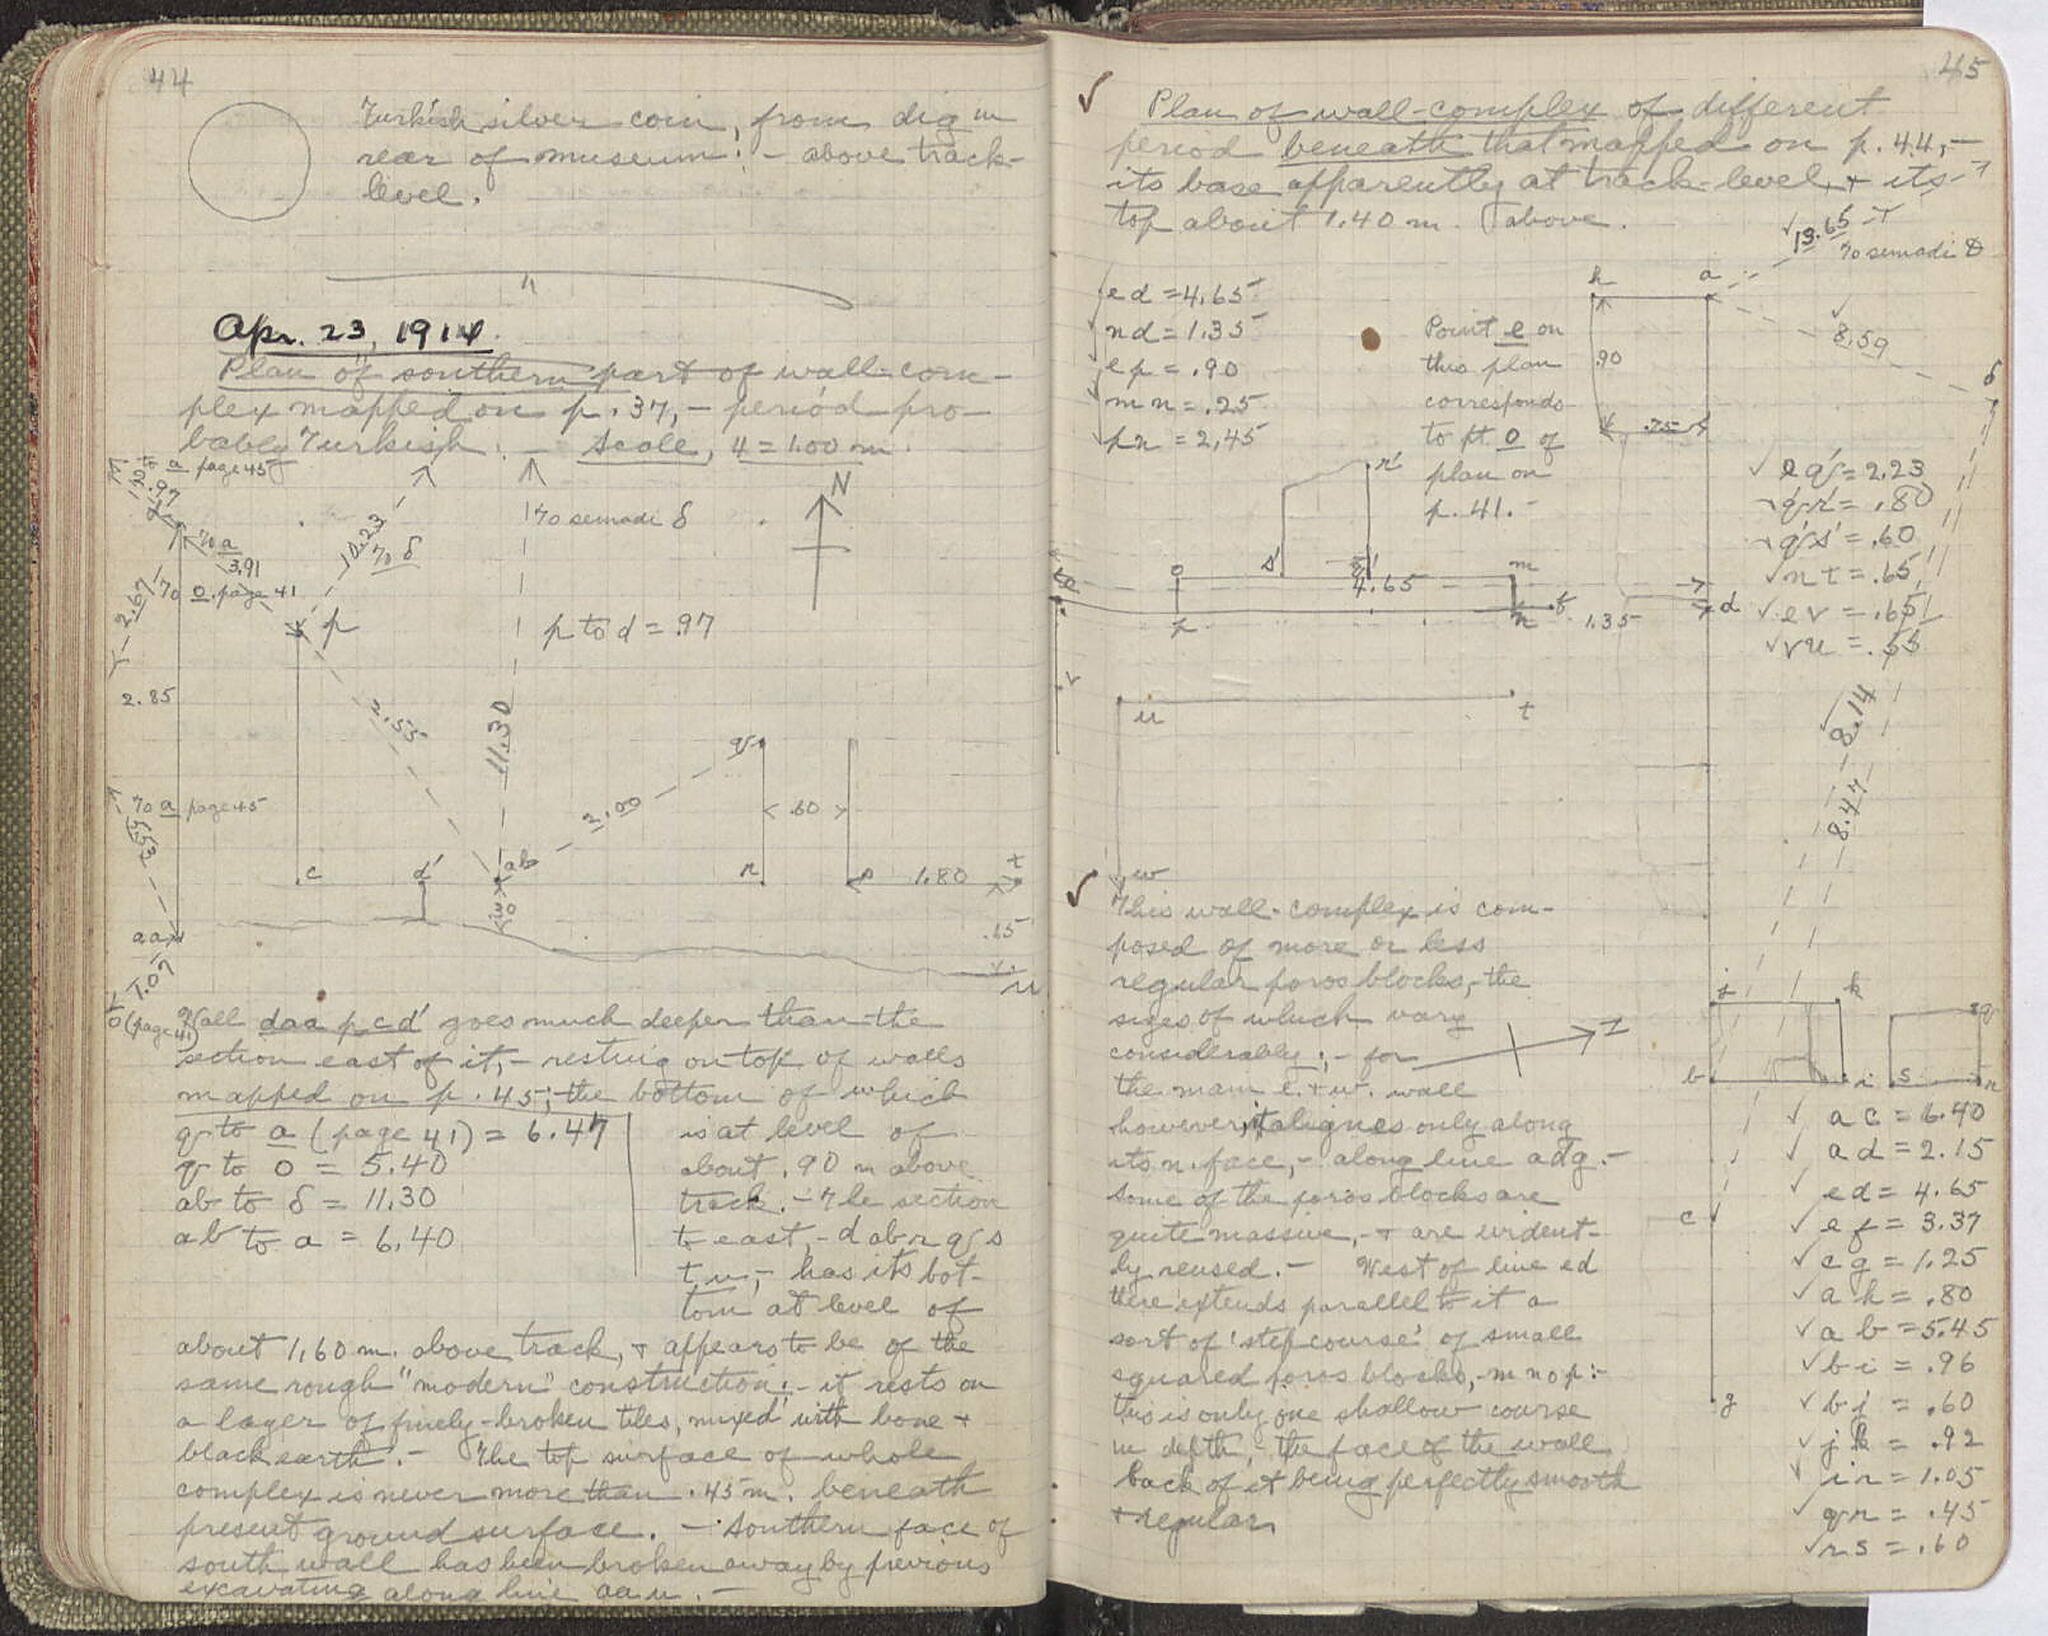 44
Turkish silver coin, from dig in
rear of museum: - above track-
level.
Apr. 23, 1914.
Plan of southern part of wall-com-
plex mapped on p. 37, - period pro-
bably Turkish. - Scale, 4 = 1.00 m.
to a page 45
2.97
to a
3.91
to o. page 41
10.23
to δ
to semadi δ
N
2.67
p
p to d = .97
2.85
2.55
11.30
q
3.00
.60
to a page 45
c
d'
ab
r
s
1.80
t
.30
aa
.15
u
1.07
to o (page 41)
Wall daa p c d' goes much deeper than the
section east of it, - resting on top of walls
mapped on p. 45; the bottom of which
is at level of
about .90 m above
track. - The section
to east, - d ab r q s
t u, - has its bot-
tom at level of
q to a (page 41) = 6.47
q to o = 5.40
ab to δ = 11.30
ab to a = 6.40
about 1.60 m. above track, + appears to be of the
same rough "modern" construction: - it rests on
a layer of finely-broken tiles, mixed with bone +
black earth. - The top surface of whole
complex is never more than .45 m. beneath
present ground surface. - Southern face of
south wall has been broken away by previous
excavating along line aa u. -
45
Plan of wall-complex of different
period beneath that mapped on p. 44, -
its base apparently at track-level, + its
top about 1.40 m. above.
13.65
to semadi
h
a
8.59
δ
ed = 4.65
nd = 1.35
ep = .90
mn = .25
pn = 2.45
Point e on
this plan
corresponds
to pt. o of
plan on
p. 41. -
.90
.75
✓ eq' = 2.23
✓ q'r' = .80
✓ q's' = .60
✓ nt = .65
✓ ev = .65
✓ vu = .55
r'
s'
e
o
m
4.65
p
n
f
1.35
d
v
u
t
8.14
8.47
w
✓ This wall-complex is com-
posed of more or less
regular poros blocks, - the
sizes of which vary
considerably; - for
the main e. + w. wall
however, it alignes only along
its n. face, - along line adg. -
Some of the poros blocks are
quite massive, - + are evident-
ly reused. - West of line ed
there extends parallel to it a
sort of 'step course' of small
squared poros blocks, - m n o p: -
this is only one shallow course
in depth, - the face of the wall
back of it being perfectly smooth
+ regular.
j
k
q
b
i
s
r
c
g
✓ ac = 6.40
✓ ad = 2.15
✓ ed = 4.65
✓ ef = 3.37
✓ cg = 1.25
✓ ah = .80
✓ ab = 5.45
✓ bi = .96
✓ bj = .60
✓ jk = .92
✓ ir = 1.05
✓ qr = .45
✓ rs = .60